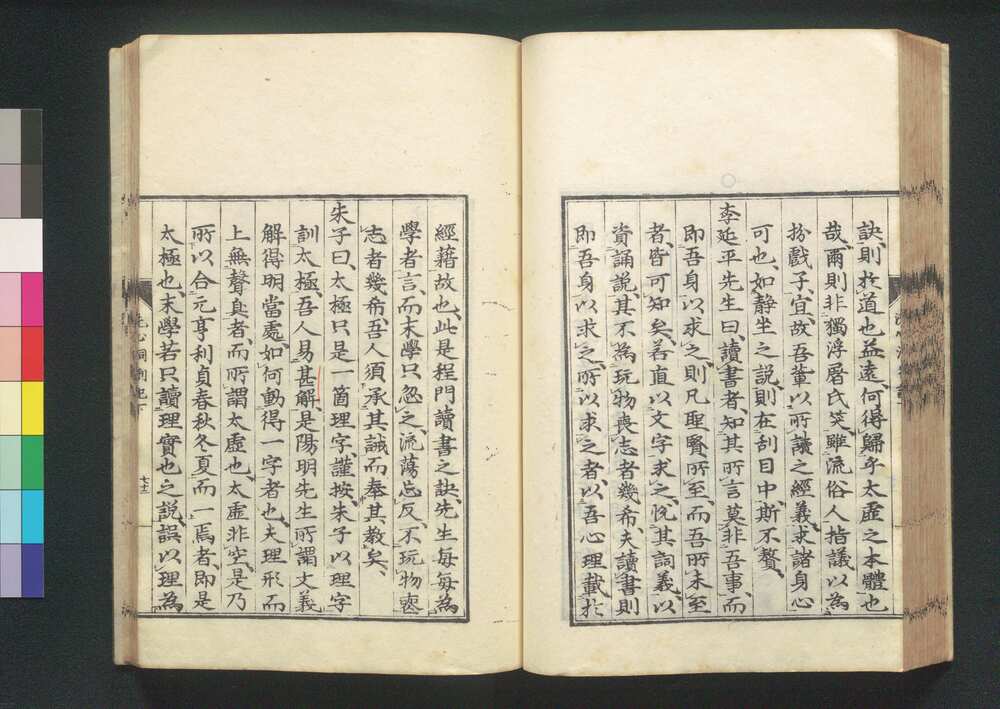 訣、則於道也益遠、何得歸乎太虛之本體也
哉、爾則非獨浮屠氏笑、雖流俗人指議以為
扮戲子、宜、故吾輩以所讀之經義、求諸身心
可也、如靜坐之說、則在刮目中、斯不贅、
李延平先生曰、讀書者、知其所言莫非吾事、而
即吾身以求之、則凡聖賢所至、而吾所未至
者、皆可知矣、若直以文字求之、悅其詞義、以
資誦說、其不為玩物喪志者幾希、夫讀書則
即吾身以求之、所以求之者、以吾心理載於
經藉故也、此是程門讀書之訣、先生每每為
學者言、而末學只忽之、流蕩忘反、不玩物喪
志者幾希、吾人須承其誡而奉其教矣、
朱子曰、太極只是一箇理字、謹按、朱子以理字
訓太極、吾人易甚解、是陽明先生所謂文義
解得明當處、如何動得一字者也、夫理形而
上無聲臭者、而所謂太虛也、太虛非空、是乃
所以合元亨利貞春秋冬夏而一焉者、即是
太極也、末學若只讀理實也之說、誤以理為
洗心洞劄記下
七十二